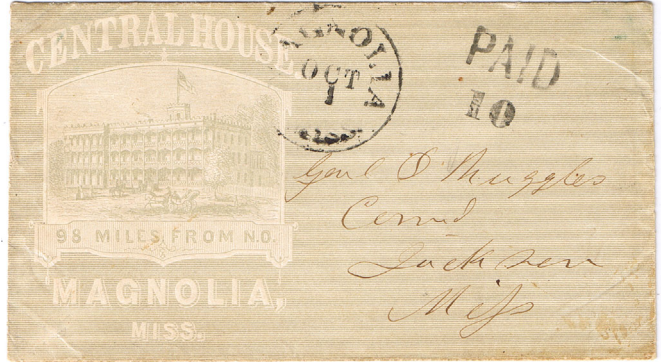 CENTRAL HOUSE
98 MILES FROM N.O.
MAGNOLIA,
MISS.
MAGNOLIA
OCT
1
MISS.
PAID
10
Genl D Ruggles
Comd
Jackson
Miss